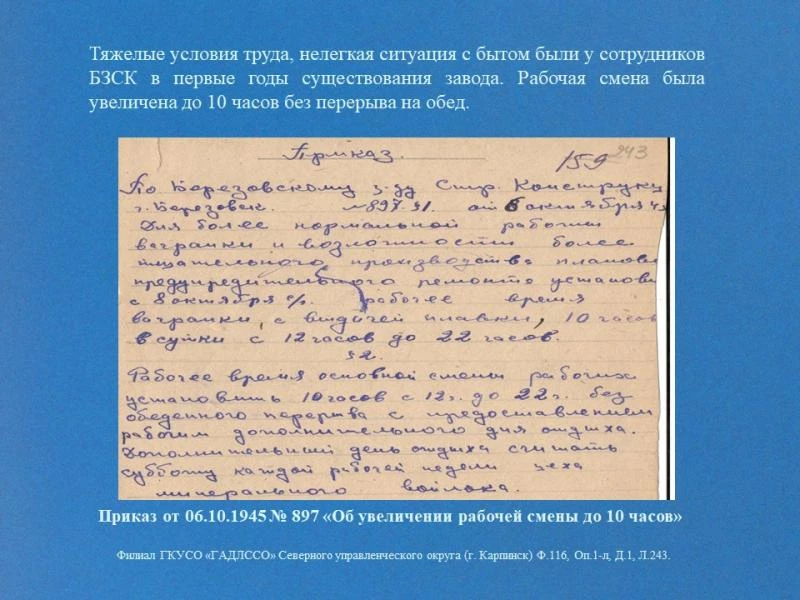 Тяжелые условия труда, нелегкая ситуация с бытом были у сотрудников
БЗСК в первые годы существования завода. Рабочая смена была
увеличена до 10 часов без перерыва на обед.
Приказ.
159 243
По Березовскому з-ду Стр. Конструкц
г. Березовск. №897. §1. от 6 октября 45
Для более нормальной работы
вагранки и возможности более
тщательного производства планово
предупредительного ремонта установи
с 8 октября с/г. рабочее время
вагранки, с выдачей плавки, 10 часов
в сутки с 12 часов до 22 часов.
§2.
Рабочее время основной смены рабочих
установить 10 часов с 12 г. до 22 г. без
обеденного перерыва с предоставлением
рабочим дополнительного дня отдыха.
Дополнительный день отдыха считать
субботу каждой рабочей недели цеха
минерального войлока.
Приказ от 06.10.1945 № 897 «Об увеличении рабочей смены до 10 часов»
Филиал ГКУСО «ГАДЛССО» Северного управленческого округа (г. Карпинск) Ф.116, Оп.1-л, Д.1, Л.243.